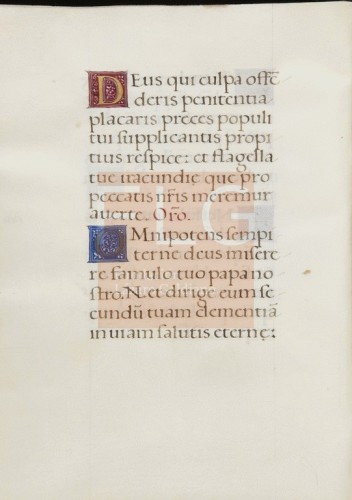 Deus qui culpa offē
deris penitentia
placaris preces populi
tui supplicantis propi
tius respice: et flagella
tue iracundię que pro
peccatis nr̄is meremur
auerte. Oro.
Omnipotens sempi
terne deus misere
re famulo tuo papa no
stro. N. et dirige eum se
cundū tuam clementiā
in uiam salutis eternę:
FLG